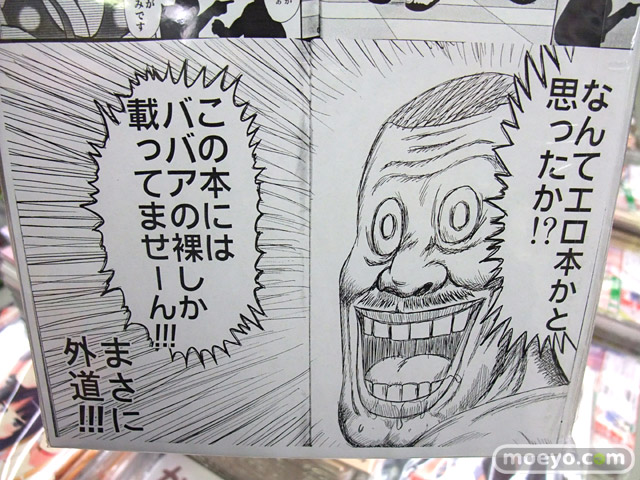 なんてエロ本かと
思ったか!?
この本には
ババアの裸しか
載ってませーん!!!
まさに
外道!!!
みです
moeyo.com